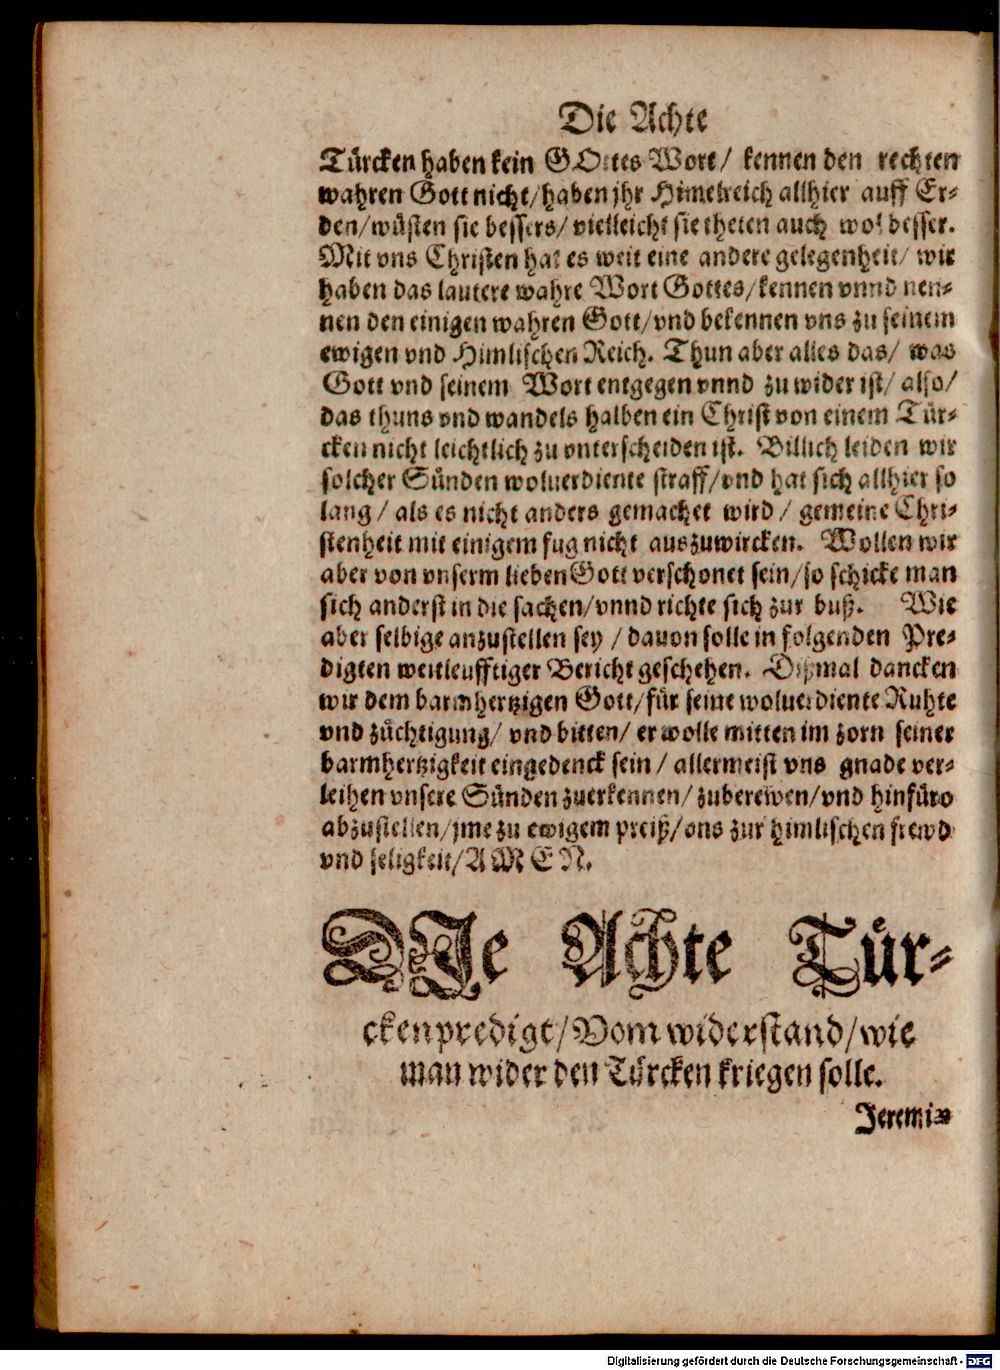 Die Achte
Türcken haben kein GOttes Wort/ kennen den rechten
wahren Gott nicht/haben jhr Himelreich allhier auff Er-
den/wüsten sie bessers/ vielleicht sie theten auch wol besser.
Mit vns Christen hat es weit eine andere gelegenheit/ wir
haben das lautere wahre Wort Gottes/kennen vnnd nen-
nen den einigen wahren Gott/vnd bekennen vns zu seinem
ewigen vnd Himlischen Reich. Thun aber alles das/ was
Gott vnd seinem Wort entgegen vnnd zu wider ist/ also/
das thuns vnd wandels halben ein Christ von einem Tür-
cken nicht leichtlich zu vnterscheiden ist. Billich leiden wir
solcher Sünden woluerdiente straff/vnd hat sich allhier so
lang/ als es nicht anders gemachet wird/ gemeine Chri-
stenheit mit einigem fug nicht auszuwircken. Wollen wir
aber von vnserm lieben Gott verschonet sein/so schicke man
sich anderst in die sachen/vnnd richte sich zur buß. Wie
aber selbige anzustellen sey/ dauon solle in folgenden Pre-
digten weitleufftiger Bericht geschehen. Dißmal dancken
wir dem barmhertzigen Gott/für seine woluerdiente Ruhte
vnd züchtigung/ vnd bitten/ er wolle mitten im zorn seiner
barmhertzigkeit eingedenck sein/ allermeist vns gnade ver-
leihen vnsere Sünden zuerkennen/ zuberewen/vnd hinfüro
abzustellen/jme zu ewigem preiß/vns zur himlischen frewd
vnd seligkeit/AMEN.
DIe Achte Tür-
ckenpredigt/Vom widerstand/wie
man wider den Türcken kriegen solle.
Jeremiæ
Digitalisierung gefördert durch die Deutsche Forschungsgemeinschaft - DFG